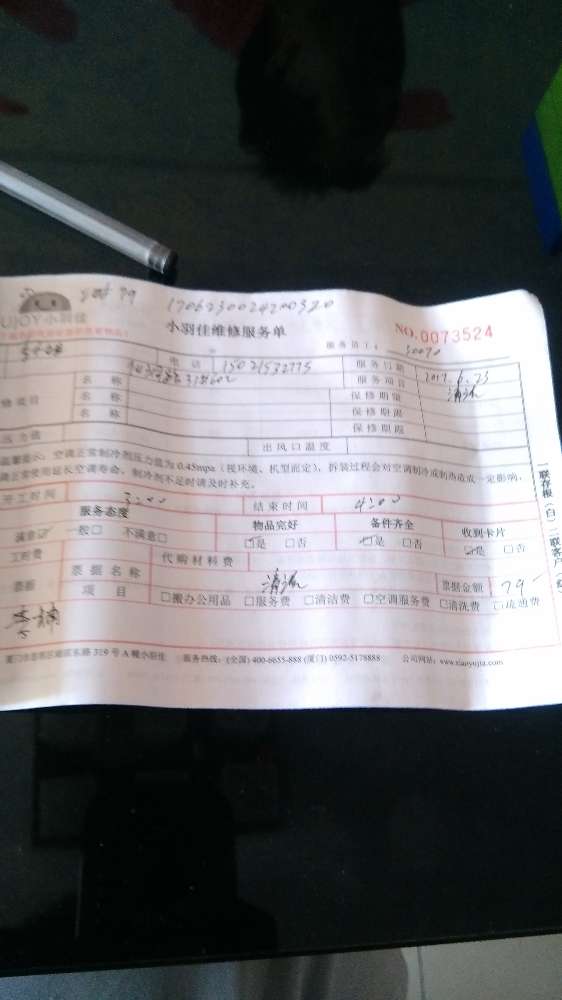 UJOY小羽佳
1706230024200320
小羽佳维修服务单
NO.0073524
电话 15021532775 服务日期 2017.6.23
名称 服务项目 清洗
修项目 名称 保修期限
名称 保修期限
保修期限
压力值 出风口温度
温馨提示：空调正常制冷剂压力值为0.45mpa（视环境、机型而定），拆装过程会对空调制冷或制热造成一定影响，
调正常使用延长空调寿命，制冷剂不足时请及时补充。
开工时间 3:00 结束时间 4:00
服务态度 物品完好 备件齐全 收到卡片
满意☑ 一般□ 不满意□ ☑是 □否 ☑是 □否 ☑是 □否
工时费 代购材料费
票据 票据名称 清洗 票据金额 79-
项目 □搬办公用品 □服务费 □清洁费 □空调服务费 □清洗费 □疏通费
李楠
319号A幢小羽佳 服务热线：(全国) 400-6655-888 (厦门) 0592-5178888 公司网站：www.xiaoyujia.com
一联存根（白） 二联客户（红）